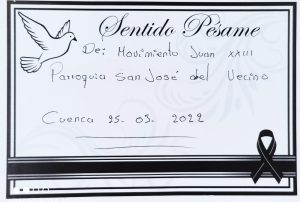 Sentido Pésame
De: Movimiento Juan XXIII
Parroquia San José del Vecino
Cuenca 25-03-2022